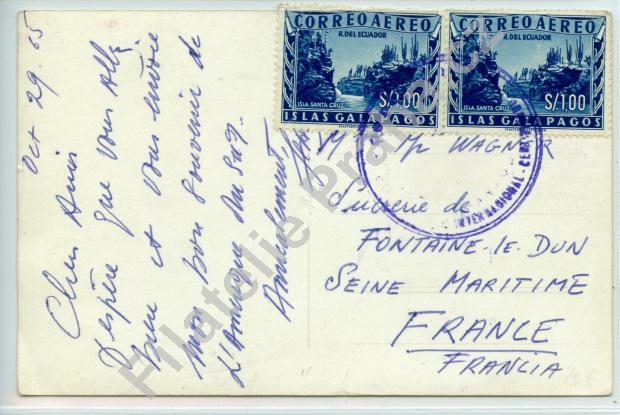 Oct 29. 65
Chers Amis
J'espère que vous allez
bien et vous envoie
mon bon souvenir de
l'Amérique du Sud.
Amicalement,
CORREO AEREO
R. DEL ECUADOR
ISLA SANTA CRUZ
S/1.00
ISLAS GALAPAGOS
CORREO AEREO
R. DEL ECUADOR
ISLA SANTA CRUZ
S/1.00
ISLAS GALAPAGOS
INTERNACIONAL
WAGNER
Sucrerie de
FONTAINE-LE-DUN
SEINE MARITIME
FRANCE
FRANCIA
Filatelie Praha